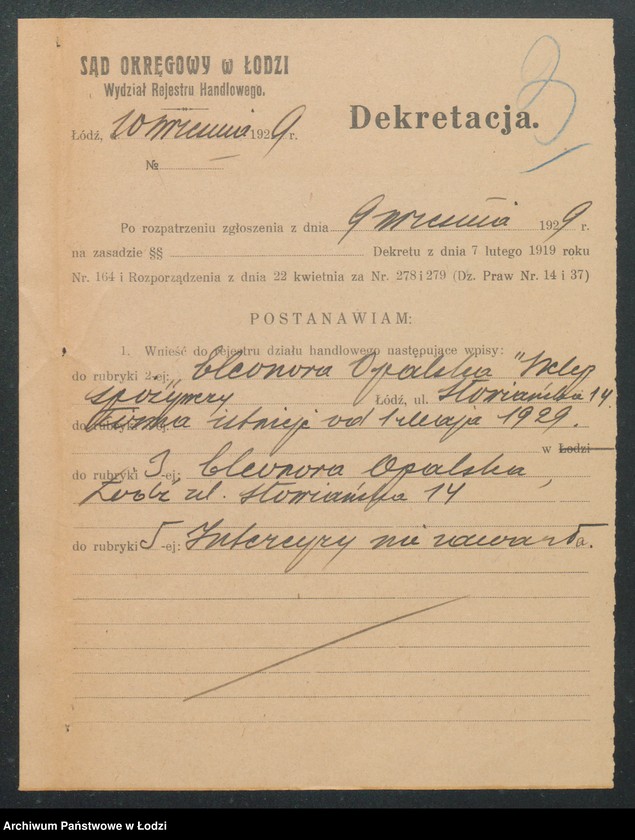 SĄD OKRĘGOWY w ŁODZI
Wydział Rejestru Handlowego.
3
Dekretacja.
Łódź, d. 10 września 1929 r.
№
Po rozpatrzeniu zgłoszenia z dnia 9 września 1929 r.
na zasadzie §§ Dekretu z dnia 7 lutego 1919 roku
Nr. 164 i Rozporządzenia z dnia 22 kwietnia za Nr. 278 i 279 (Dz. Praw Nr. 14 i 37)
POSTANAWIAM:
1. Wnieść do rejestru działu handlowego następujące wpisy:
do rubryki 2-ej: Eleonora Opalska "Sklep
spożywczy" Łódź, ul. Słowiańska 14.
do Firma istnieje od 1 maja 1929.
w Łodzi
do rubryki 3-ej: Eleonora Opalska,
Łódź, ul. Słowiańska 14
do rubryki 5-ej: Intercyzy nie zawarła.
Archiwum Państwowe w Łodzi